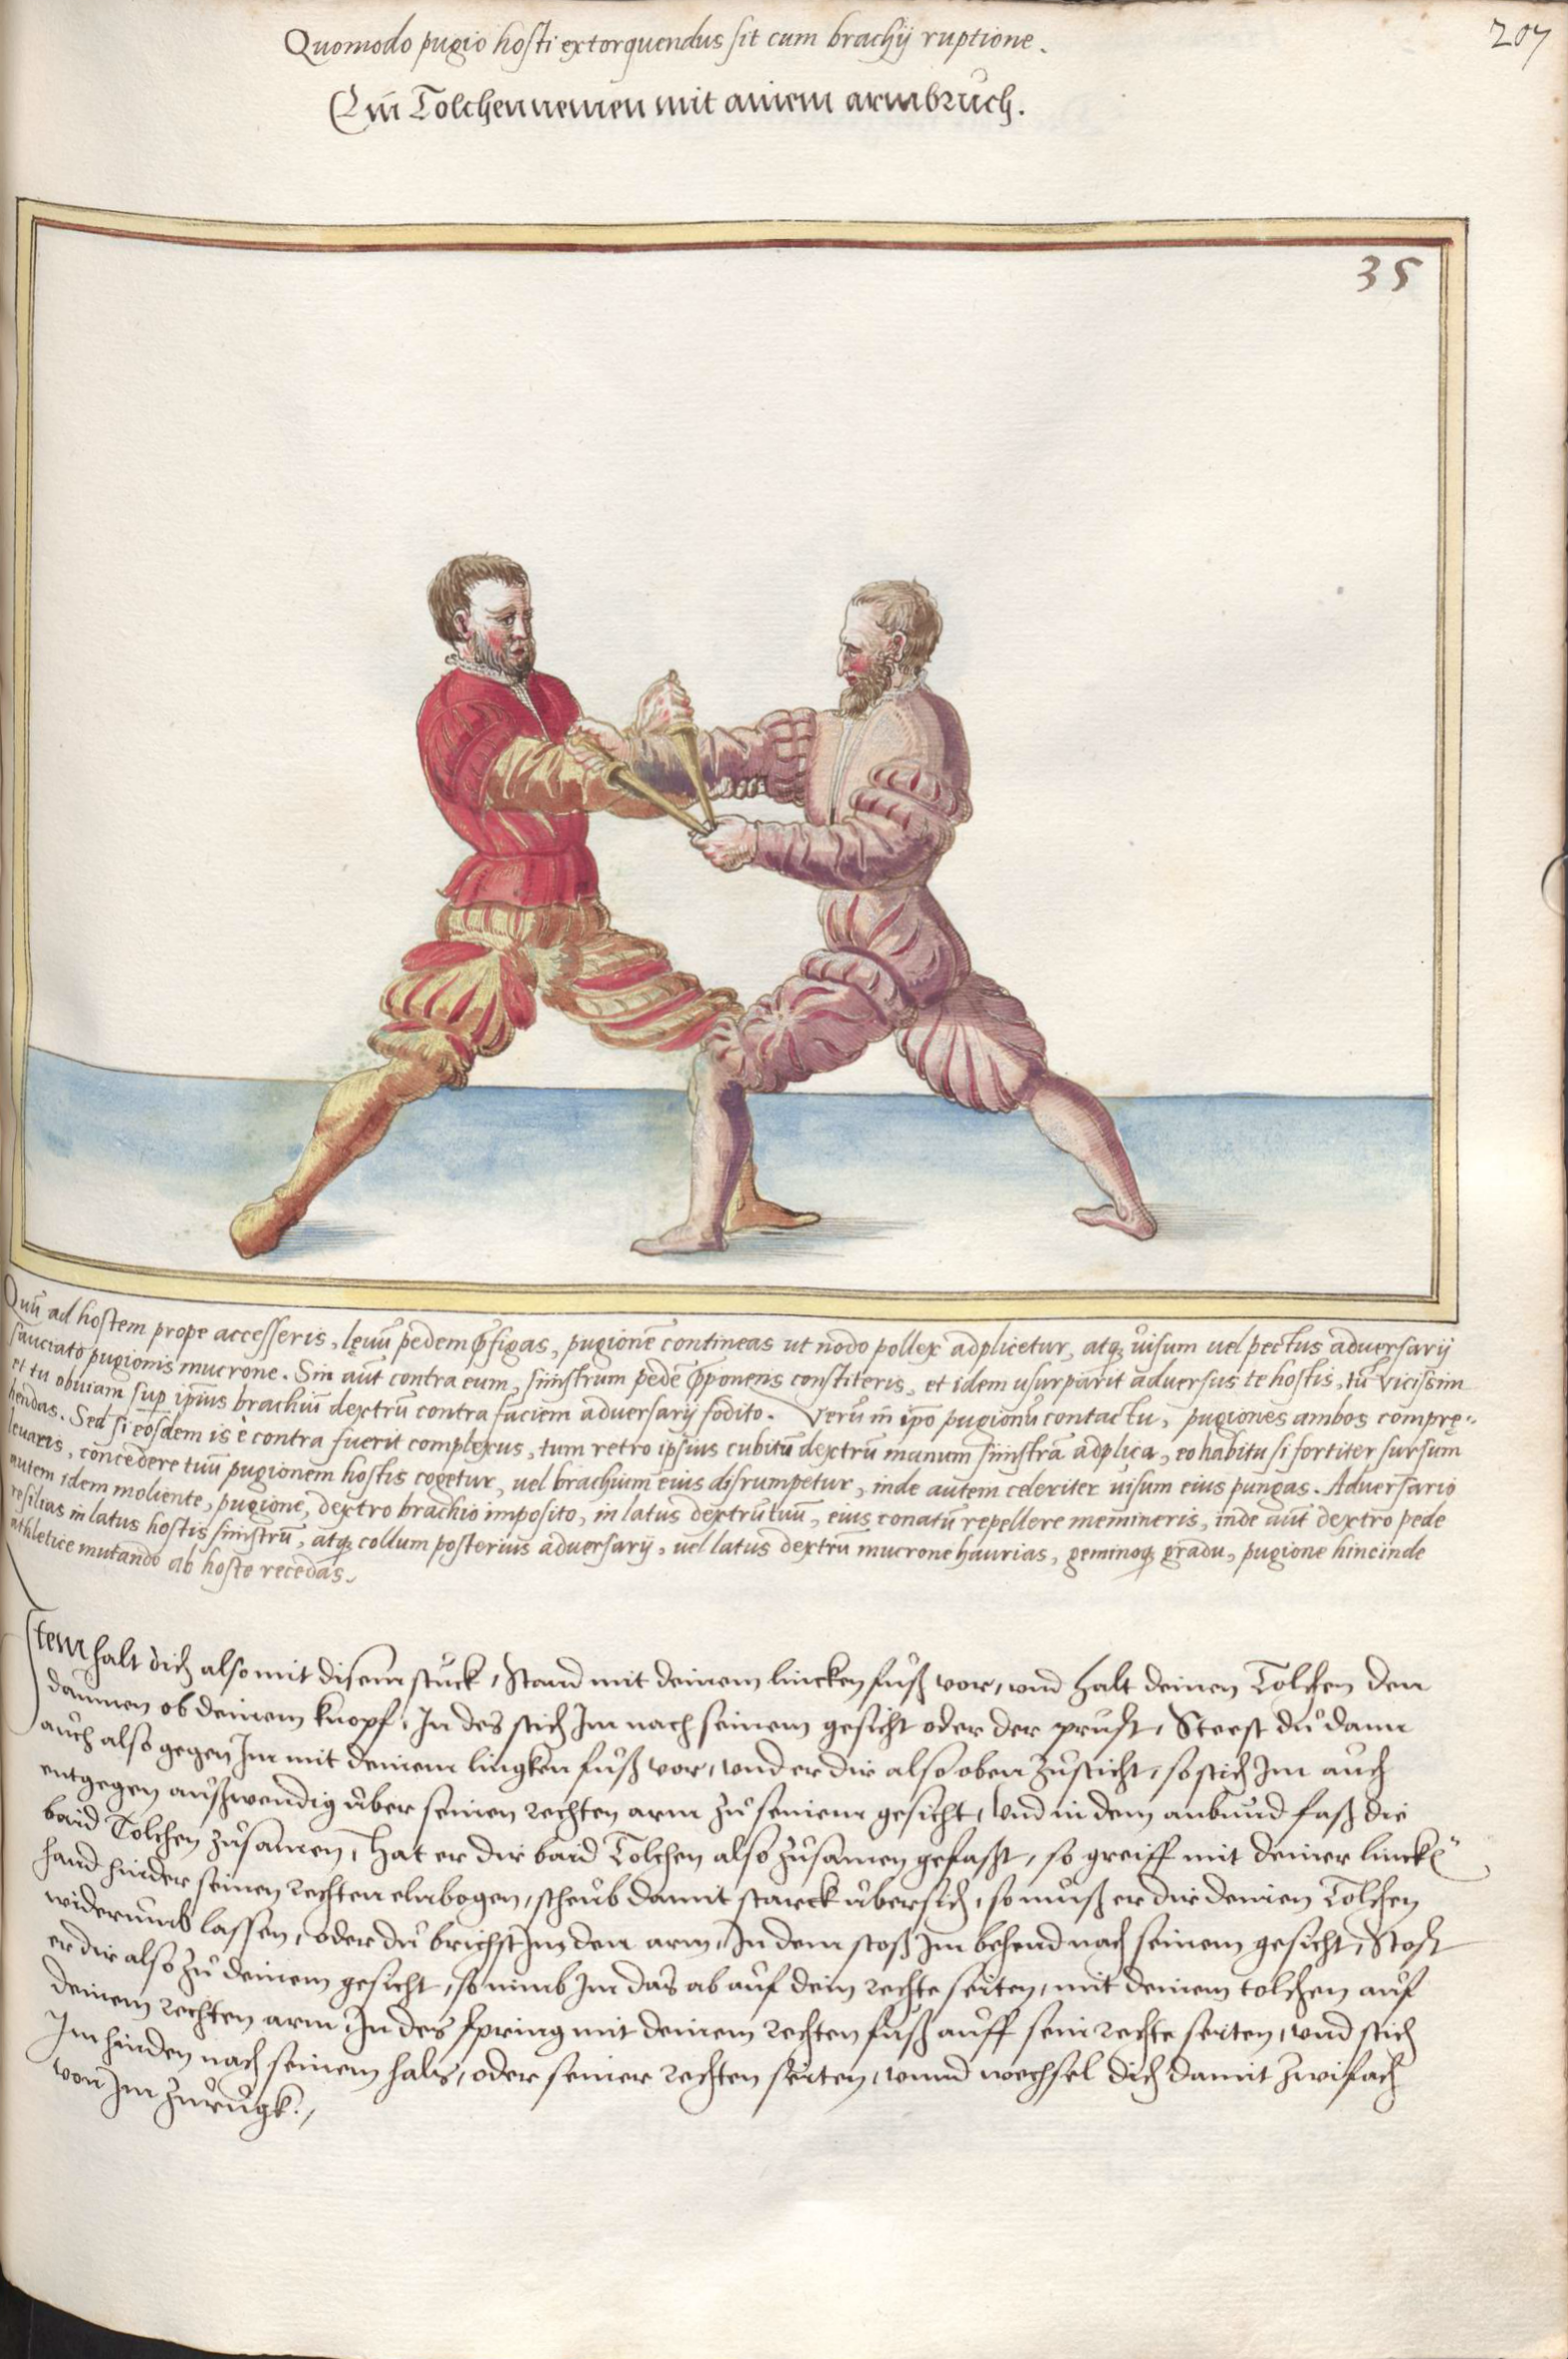 Quomodo pugio hosti extorquendus sit cum brachij ruptione.
207
Ein Tolchen nemen mit ainem armbruch.
35
Quũ ad hostem prope accesseris, lęvũ pedem p̄figas, pugionẽ contineas ut nodo pollex adplicetur, atq; uisum uel pectus adversarij
sauciato pugionis mucrone. Sin aũt contra eum, sinistrum pedẽ p̄ponens constiteris, et idem usurparit adversus te hostis, tũ vicissim
et tu obuiam sup ipius brachiũ dextrũ contra faciem adversarij fodito. Verũ in ipo pugionũ contactu, pugiones ambos compręhendas.
Sed si eosdem is è contra fuerit complexus, tum retro ipsius cubitũ dextrũ manum sinistrã adplica, eo habitu si fortiter sursum
leuaris, concedere tuũ pugionem hostis cogetur, vel brachium eius disrumpetur, inde autem celeriter uisum eius pungas. Adversario
autem idem moliente, pugione, dextro brachio imposito, in latus dextrũ tuũ, eius conatũ repellere memineris, inde aũt dextro pede
resilias in latus hostis sinistrũ, atq; collum posterius adversarij, uel latus dextrũ mucrone haurias, geminoq; gradu, pugione hincinde
athletice mutando ab hoste recedas.
Item halt dich also mit disem stuck, Stand mit deinem lincken fuß vor, vnd halt deinen Tolchen den
daumen ob deinem knopf, In des stich Im nach seinem gesicht oder der prust, Steest du dann
auch also gegen Im mit deinem lingken fuß vor, vnd er dir also oben zusticht, so stich Im auch
entgegen außwendig über seinen rechten arm zu seinem gesicht, Vnd in dem anbund faß die
baid Tolchen zusamen, Hat er dir baid Tolchen also zusamen gefaßt, so greiff mit deiner lincke͂
hand hinder seinen rechten elnbogen, scheub damit starck übersich, so muß er dir deinen Tolchen
widerumb lassen, oder du brichst Im den arm, In dem stoß Im behend nach seinem gesicht, Stost
er dir also zu deinem gesicht, so nimb Im das ab auf dein rechte seiten, mit deinem tolchen auf
deinem rechten arm, In des spring mit deinem rechten fuß auff sein rechte seiten, vnd stich
Im hinden nach seinem hals, oder seiner rechten seiten, vnnd wechsel dich damit zwifach
von Im zurugk.